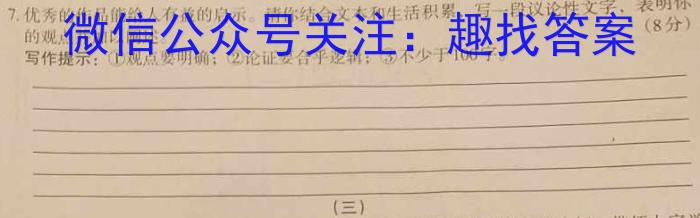 7.优秀的作品能给人有益的启示。请你结合文本和生活积累，写一段议论性文字，表明你
的观点
(8分)
微信公众号关注：趣找答案
写作提示：①观点要明确；②论证要合乎逻辑；③不少于100字。
(三)